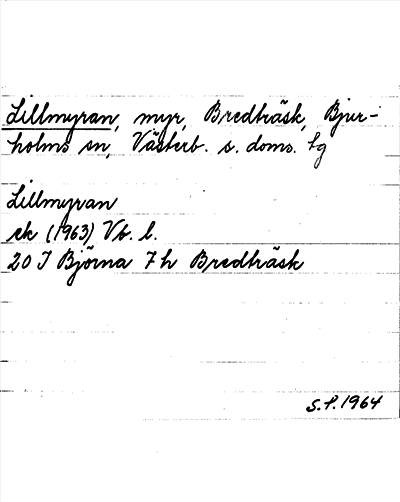 Lillmyran, myr, Bredträsk, Bjur-
holms sn, Västerb. s. doms. lg
Lillmyran
ek (1963) Vb. l.
20 J Björna 7 h Bredträsk
S.P. 1964